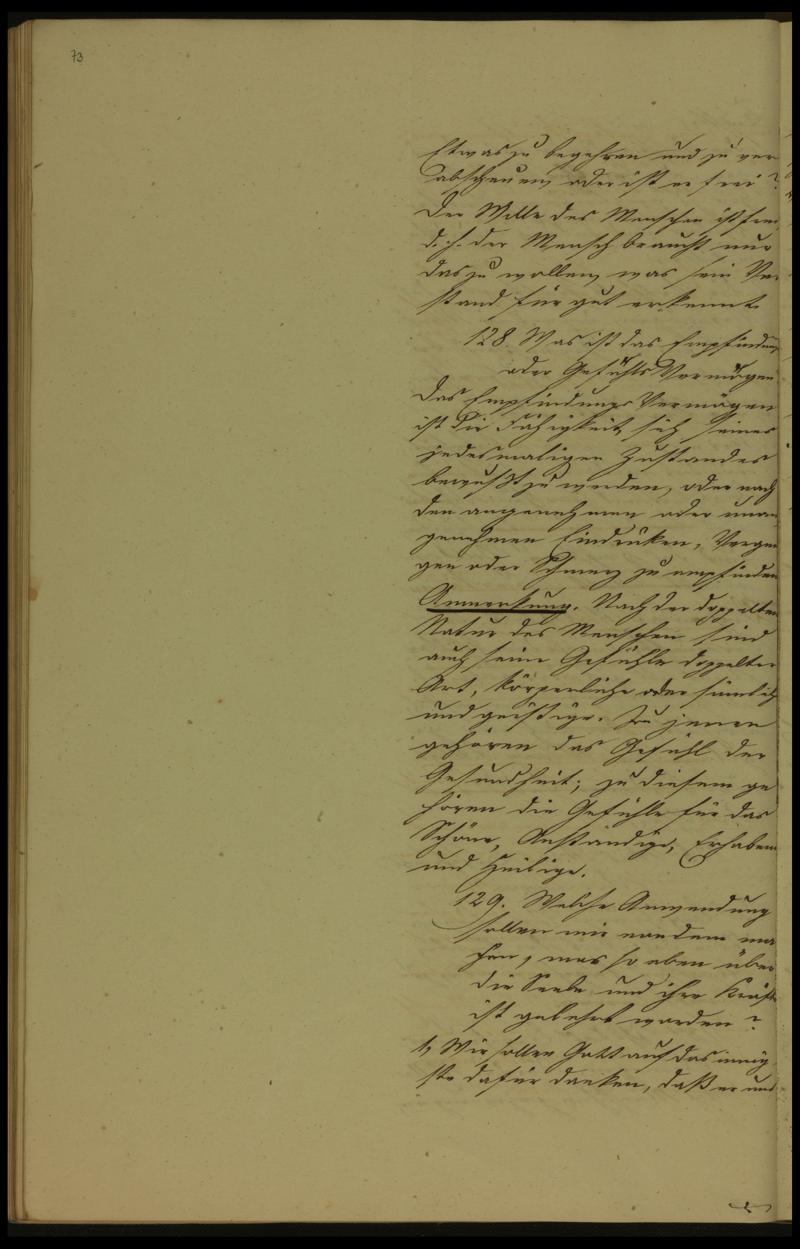 73
Etwas zu begehren und zu ver
abscheuen, oder ist er frei?
Der Wille des Menschen ist frei,
d. h. der Mensch braucht nur
das zu wollen, was sein Ver
stand für gut erkennt.
128. Was ist das Empfindungs
oder Gefühls Vermögen
Das Empfindungs Vermögen
ist die Fähigkeit, sich seines
jedesmaligen Zustandes
bewußt zu werden, oder nach
den angenehmen oder unan
genehmen Eindrüken, Vergnü
gen oder Schmerz zu empfinden
Anmerkung. Nach der doppelten
Natur des Menschen sind
auch seine Gefühle doppelter
Art, körperliche oder sinnlich
und geistige. Zu jenen
gehören das Gefühl der
Gesundheit; zu diesem ge
hören die Gefühle für das
Schöne, Anständige, Erhabene
und Heilige.
129. Welche Anwendung
sollen wir von dem ma
chen, was so eben über
die Seele und ihre Kräfte
ist gelehrt worden?
1, Wir sollen Gott auf das innig
ste dafür danken, daß er uns